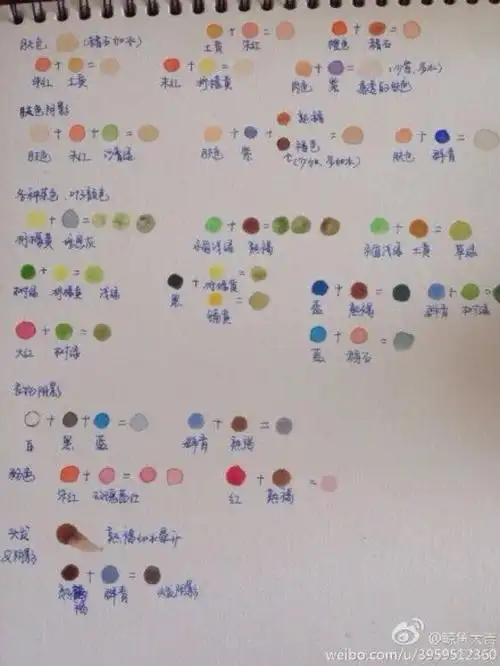 肤色 (赭石加水)
土黄 + 朱红 =
橙色 + 赭石 =
朱红 + 土黄 =
朱红 + 柠檬黄 =
肉色 + 紫 = (少紫,多水)
肤色阴影
肤色 + 朱红 + 沙普绿 =
肤色 + 紫 + 熟褐 =
褐色
(少加,多加水)
肤色 + 群青 =
各种草色、叶子颜色
柠檬黄 + 灰 =
永固浅绿 + 熟褐 =
永固浅绿 + 土黄 = 草绿
树绿 + 柠檬黄 = 浅绿
黑 + 柠檬黄 =
橘黄 =
蓝 + 熟褐 =
群青 + 树绿 =
大红 + 树绿 =
蓝 + 赭石 =
衣物阴影
白 + 黑 + 蓝 =
群青 + 熟褐 =
粉色
朱红 + 玫瑰茜红 =
红 + 熟褐 =
头发
及阴影
熟褐加水晕开
熟褐 + 群青 = 头发阴影
@鲸鱼大吉
weibo.com/u/3959512360